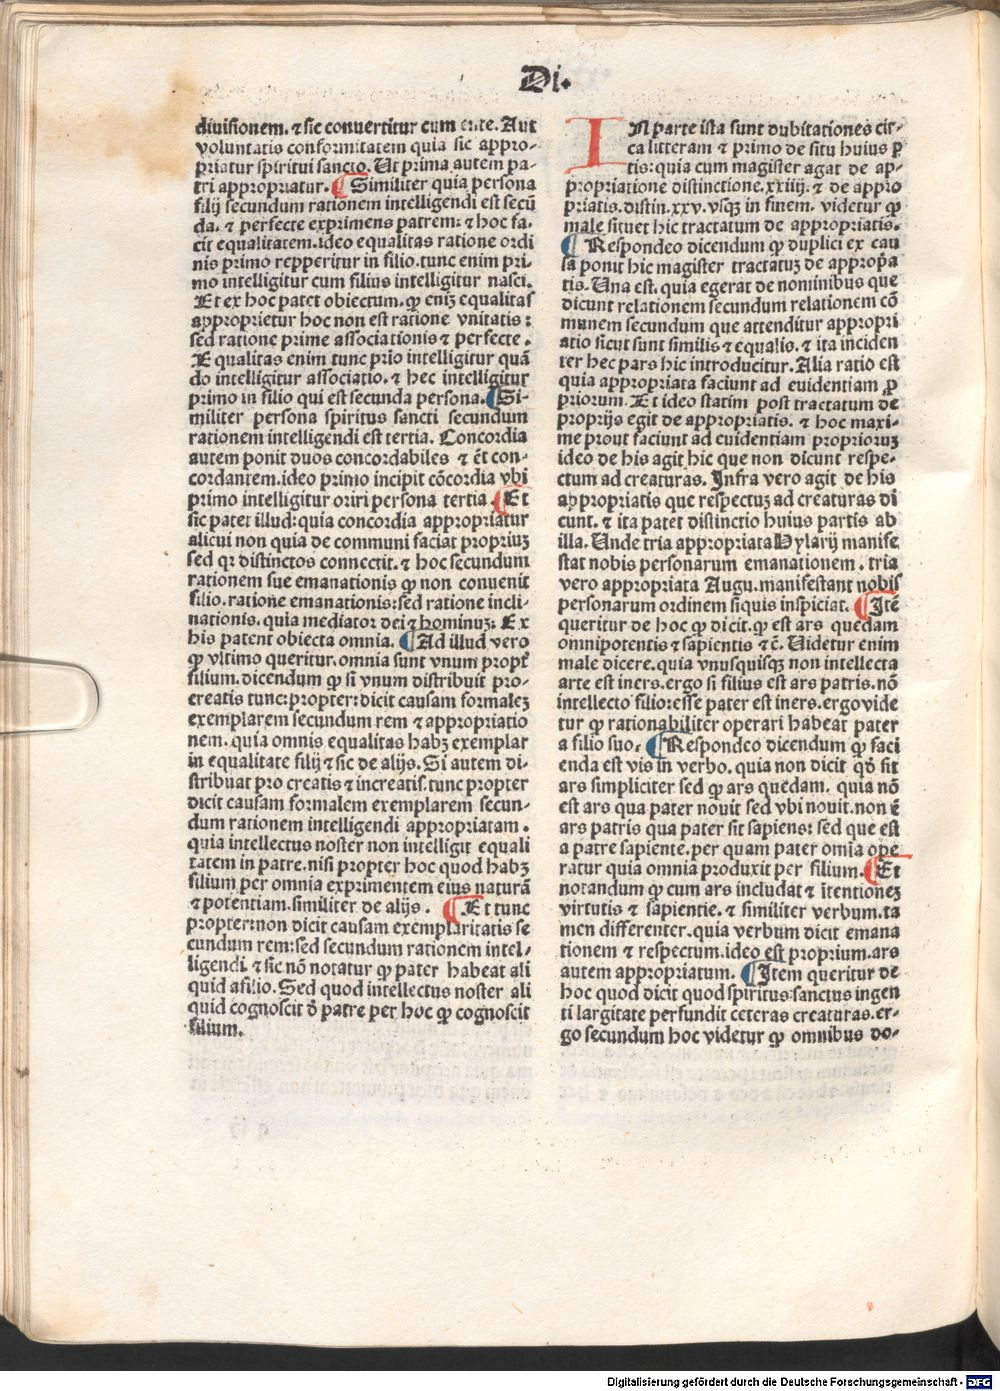 Di.
diuisionem. ⁊ sic conuertitur cum ente. Aut
voluntatis conformitatem quia sic appro-
priatur spiritui sancto. Ut prima autem pa-
tri appropriatur. ¶ Similiter quia persona
filij secundum rationem intelligendi est secū
da. ⁊ perfecte exprimens patrem: ⁊ hoc fa-
cit equalitatem. ideo equalitas ratione ordi
nis primo repperitur in filio. tunc enim pri-
mo intelligitur cum filius intelligitur nasci.
Et ex hoc patet obiectum. ꝙ eniꝫ equalitas
approprietur hoc non est ratione vnitatis:
sed ratione prime associationis ⁊ perfecte.
Equalitas enim tunc prio intelligitur quā
do intelligitur associatio. ⁊ hec intelligitur
primo in filio qui est secunda persona. ¶ Si-
militer persona spiritus sancti secundum
rationem intelligendi est tertia. Concordia
autem ponit duos concordabiles ⁊ ēt con-
cordantem. ideo primo incipit cōcordia vbi
primo intelligitur oriri persona tertia. ¶ Et
sic patet illud: quia concordia appropriatur
alicui non quia de communi faciat propriuꝫ
sed qꝛ distinctos connectit. ⁊ hoc secundum
rationem sue emanationis ꝙ non conuenit
filio. ratione emanationis: sed ratione incli-
nationis. quia mediator dei ⁊ hominuꝫ. Ex
his patent obiecta omnia. ¶ Ad illud vero
ꝙ vltimo queritur. omnia sunt vnum propt̄
filium. dicendum ꝙ si vnum distribuit pro-
creatis tunc: propter: dicit causam formaleꝫ
exemplarem secundum rem ⁊ appropriatio
nem. quia omnis equalitas habꝫ exemplar
in equalitate filij ⁊ sic de alijs. Si autem di-
stribuat pro creatis ⁊ increatis. tunc propter
dicit causam formalem exemplarem secun-
dum rationem intelligendi appropriatam.
quia intellectus noster non intelligit equali
tatem in patre. nisi propter hoc quod habꝫ
filium per omnia exprimentem eius naturā
⁊ potentiam. similiter de alijs. ¶ Et tunc
propter: non dicit causam exemplaritatis se
cundum rem: sed secundum rationem intel-
ligendi. ⁊ sic nō notatur ꝙ pater habeat ali
quid a filio. Sed quod intellectus noster ali
quid cognoscit d̄ patre per hoc ꝙ cognoscit
filium.
IN parte ista sunt dubitationes cir-
ca litteram ⁊ primo de situ huius ꝑ
tis: quia cum magister agat de ap-
propriatione distinctione. xxiiij. ⁊ de appro
priatis. distin. xxv. vsqꝫ in finem. videtur ꝙ
male situet hic tractatum de appropriatis.
¶ Respondeo dicendum ꝙ duplici ex cau
sa ponit hic magister tractatuꝫ de appropͥa
tis. Una est. quia egerat de nominibus que
dicunt relationem secundum relationem cō
munem secundum que attenditur appropri
atio sicut sunt similis ⁊ equalis. ⁊ ita inciden
ter hec pars hic introducitur. Alia ratio est
quia appropriata faciunt ad euidentiam ꝓ
priorum. Et ideo statim post tractatum de
proprijs egit de appropriatis. ⁊ hoc maxi-
me prout faciunt ad euidentiam proprioruꝫ
ideo de his agit hic que non dicunt respe-
ctum ad creaturas. Infra vero agit de his
appropriatis que respectuꝫ ad creaturas di
cunt. ⁊ ita patet distinctio huius partis ab
illa. Unde tria appropriata Hylarij manife
stat nobis personarum emanationem. tria
vero appropriata Augu. manifestant nobis
personarum ordinem siquis inspiciat. ¶ Itē
queritur de hoc ꝙ dicit. ꝙ est ars quedam
omnipotentis ⁊ sapientis ⁊ c̄. Uidetur enim
male dicere. quia vnusquisqꝫ non intellecta
arte est iners. ergo si filius est ars patris. nō
intellecto filio: esse pater est iners. ergo vide
tur ꝙ rationabiliter operari habeat pater
a filio suo. ¶ Respondeo dicendum ꝙ faci
enda est vis in verbo. quia non dicit qd̄ sit
ars simpliciter sed ꝙ ars quedam. quia nō
est ars qua pater nouit sed vbi nouit. non ē
ars patris qua pater sit sapiens: sed que est
a patre sapiente. per quam pater omia ope
ratur quia omnia produxit per filium. ¶ Et
notandum ꝙ cum ars includat ⁊ ītentioneꝫ
virtutis ⁊ sapientie. ⁊ similiter verbum. ta
men differenter. quia verbum dicit emana
tionem ⁊ respectum. ideo est proprium. ars
autem appropriatum. ¶ Item queritur de
hoc quod dicit quod spiritus sanctus ingen
ti largitate perfundit ceteras creaturas. er-
go secundum hoc videtur ꝙ omnibus do-
Digitalisierung gefördert durch die Deutsche Forschungsgemeinschaft - DFG